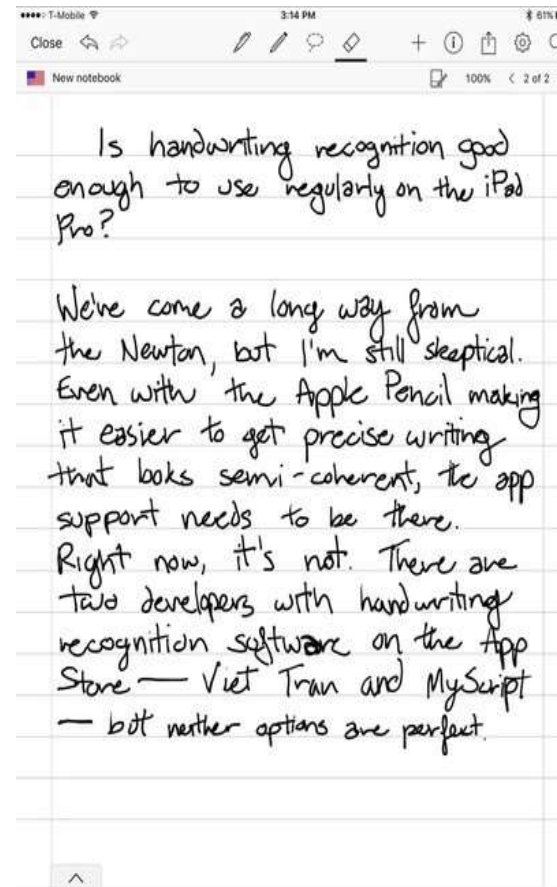 T-Mobile 3:14 PM 61%
Close
New notebook 100% < 2 of 2
Is handwriting recognition good
enough to use regularly on the iPad
Pro?
We've come a long way from
the Newton, but I'm still skeptical.
Even with the Apple Pencil making
it easier to get precise writing
that looks semi-coherent, the app
support needs to be there.
Right now, it's not. There are
two developers with handwriting
recognition software on the App
Store — Viet Tran and MyScript
— but neither options are perfect.